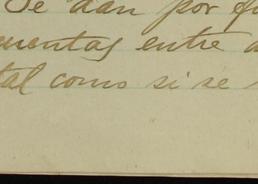 Se dan por
cuentas entre
tal como si se